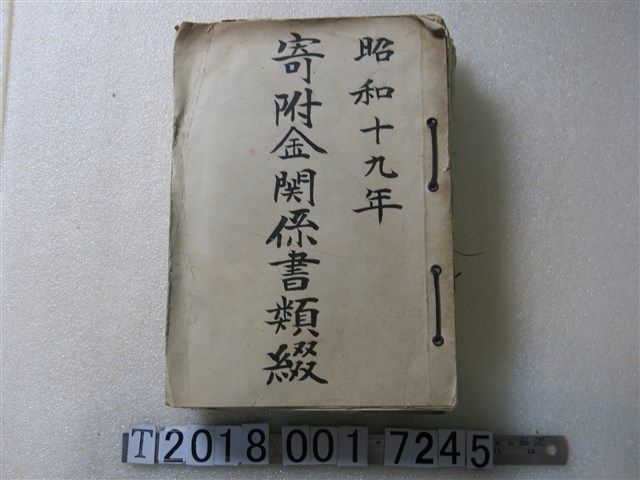 昭和十九年
寄附金関係書類綴
T2018 001 7245